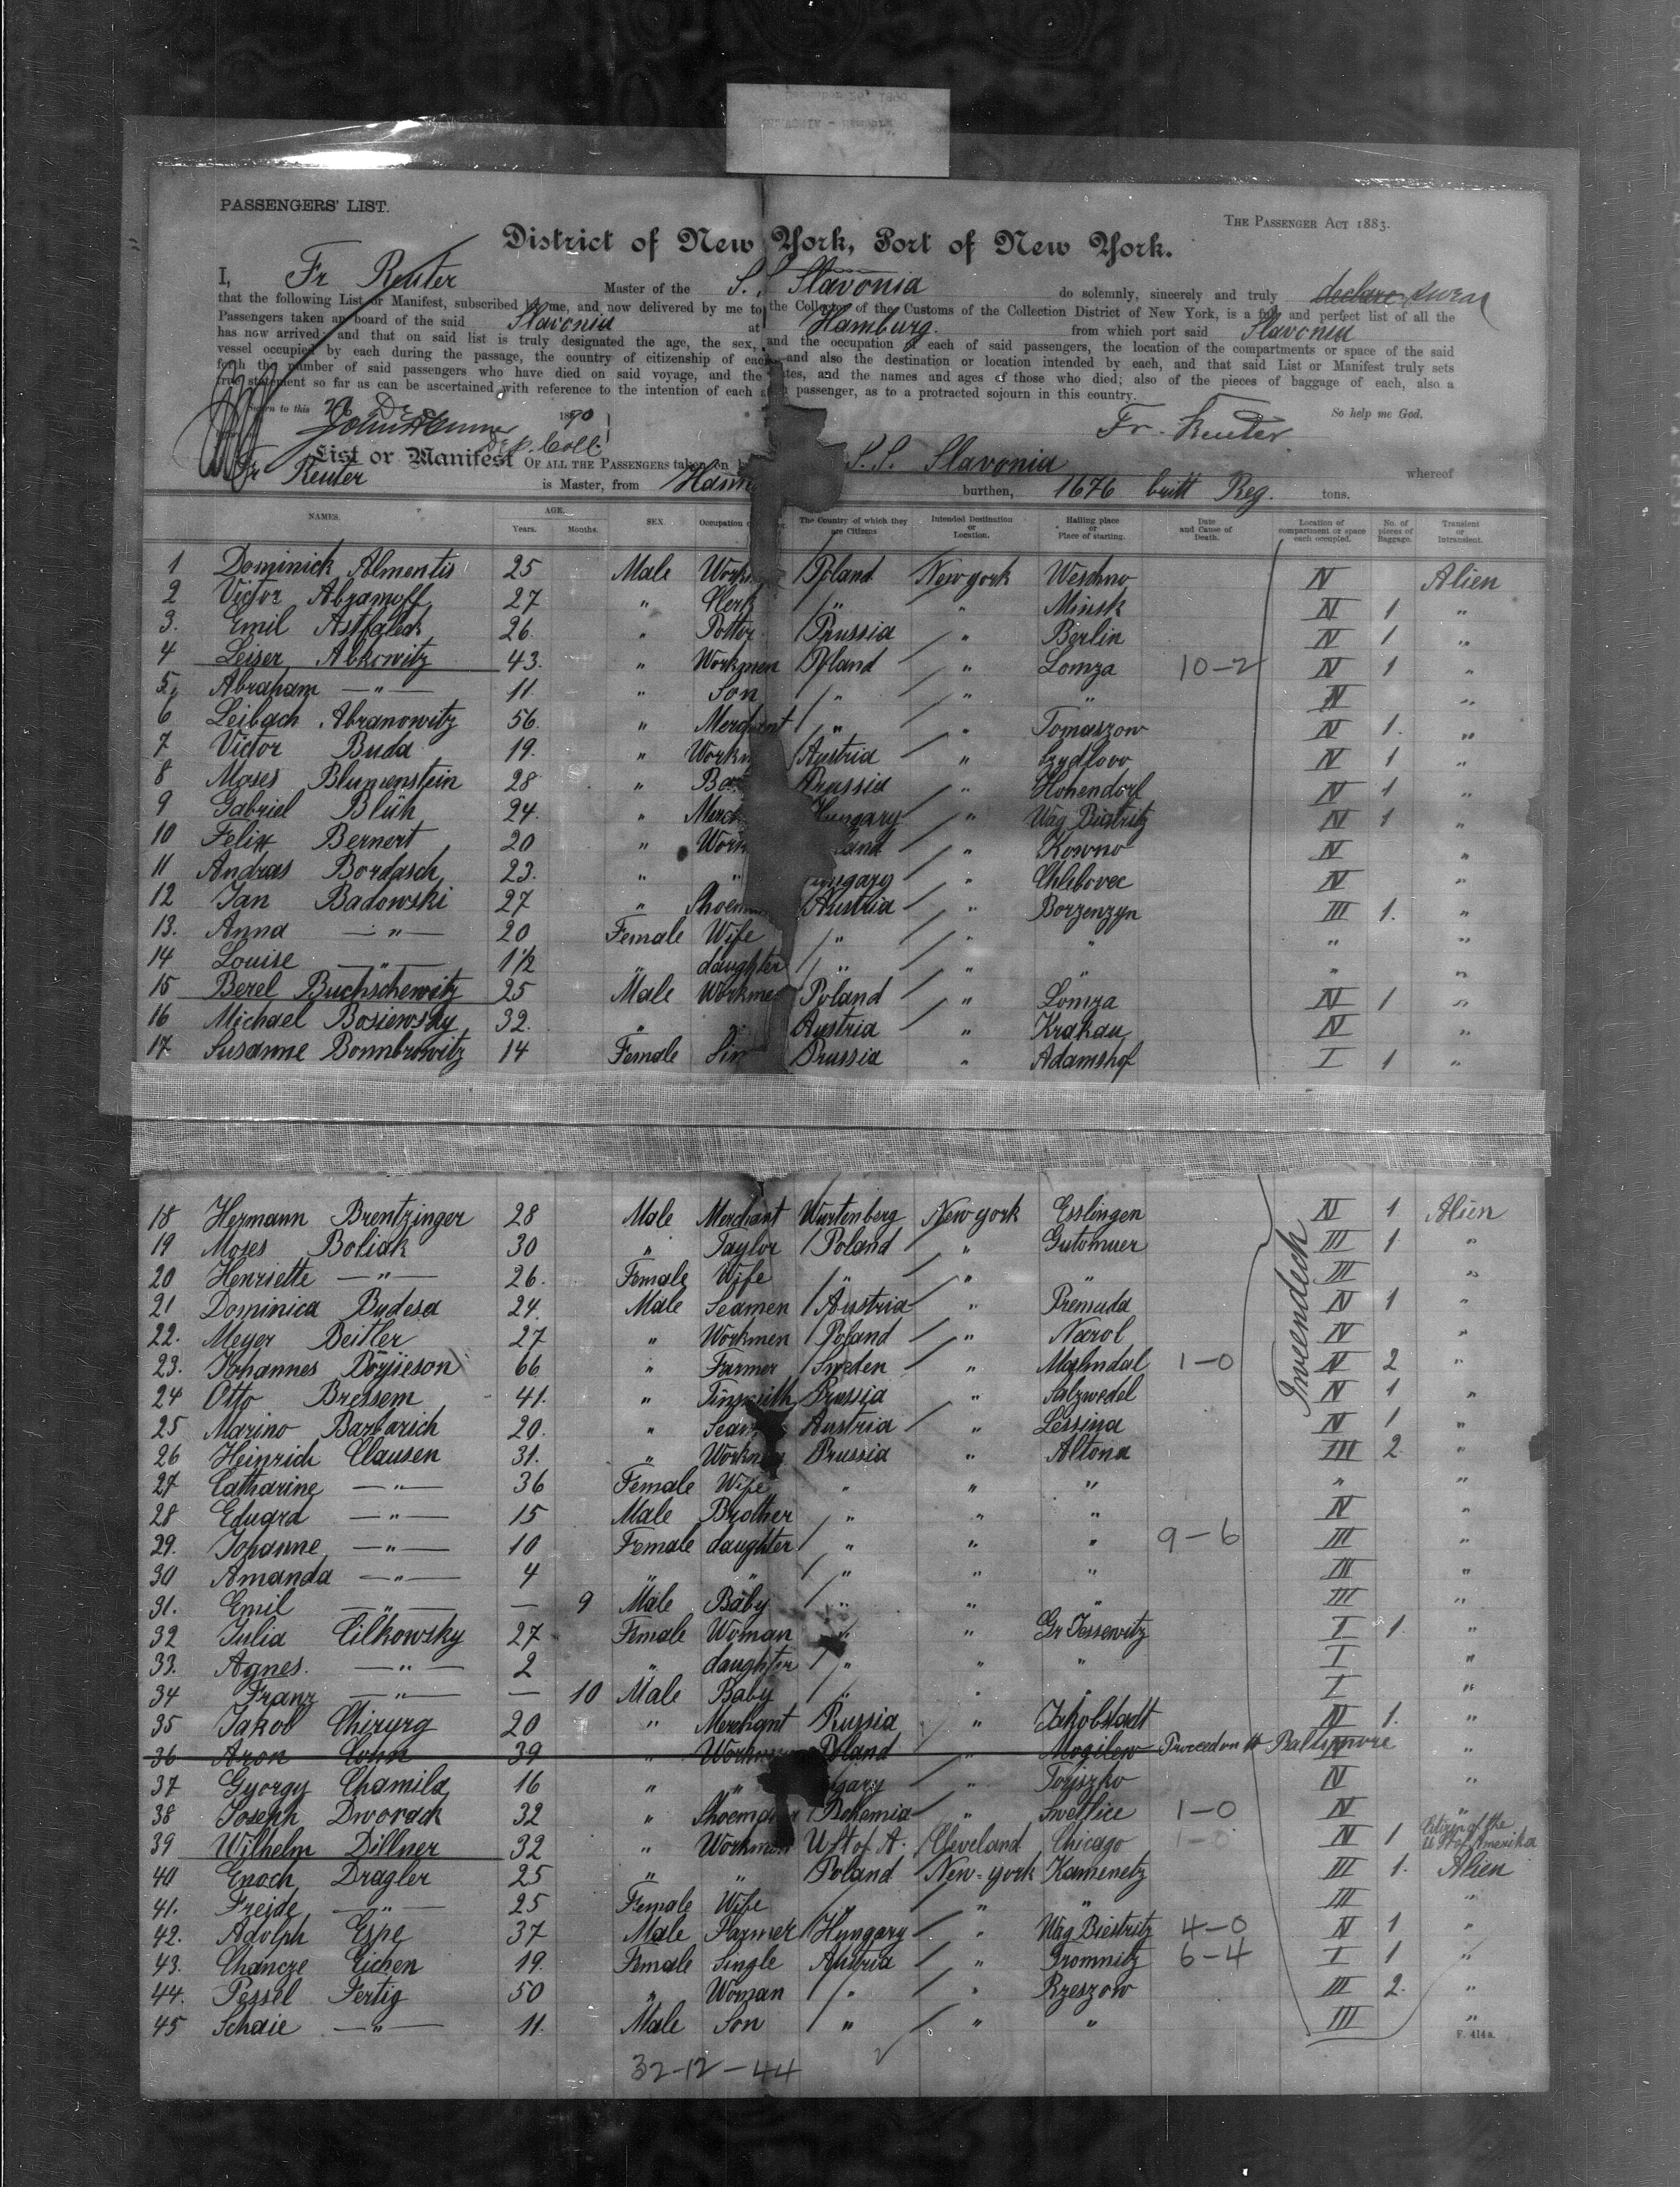 PASSENGERS' LIST.
THE PASSENGER ACT 1883.
District of New York, Port of New York.
I, Fr Reuter Master of the S.S. Slavonia do solemnly, sincerely and truly declare swear
that the following List or Manifest, subscribed by me, and now delivered by me to the Collector of the Customs of the Collection District of New York, is a full and perfect list of all the
Passengers taken on board of the said Slavonia at Hamburg from which port said Slavonia
has now arrived; and that on said list is truly designated the age, the sex, and the occupation of each of said passengers, the location of the compartments or space of the said
vessel occupied by each during the passage, the country of citizenship of each and also the destination or location intended by each, and that said List or Manifest truly sets
forth the number of said passengers who have died on said voyage, and the dates, and the names and ages of those who died; also of the pieces of baggage of each, also a
true statement so far as can be ascertained with reference to the intention of each passenger, as to a protracted sojourn in this country.
Sworn to this 26 De 1890
So help me God.
Fr. Reuter
Dep. Coll.
List or Manifest OF ALL THE PASSENGERS taken on S.S. Slavonia whereof
Fr Reuter is Master, from burthen, 1676 britt Reg. tons.
NAMES. AGE. Years. Months. SEX. Occupation The Country of which they are Citizens Intended Destination or Location. Hailing place or Place of starting. Date and Cause of Death. Location of compartment or space each occupied. No. of pieces of Baggage. Transient or Intransient.
1 Dominick Almentis 25 Male Poland New york Weschno IV Alien
2 Victor Abramoff 27 " Clerk " " Minsk IV 1 "
3. Emil Astfalck 26. " Potter Prussia " Berlin IV 1 "
4 Leiser Abkowitz 43. " Workmen Poland " Lomza 10-2 IV 1 "
5. Abraham —"— 11. " Son " " " IV "
6 Leibach Abranowitz 56. " Merchant " " Tomaszow IV 1. "
7 Victor Buda 19. " Austria " IV 1 "
8 Moses Blumenstein 28 " Prussia " Hohendorf IV 1 "
9 Gabriel Blüh 24. " Hungary " Wag Bistritz IV 1 "
10 Felix Bernert 20 " " Kowno IV "
11 Andras Bordasch 23. " " " Chlebovec IV "
12 Jan Badowski 27 " Austria " Borzenzyn III 1. "
13. Anna —"— 20 Female Wife " " " " "
14 Louise —"— 1½ " daughter " " " " "
15 Berel Buchschewitz 25 Male Workmen Poland " Lomza IV 1 "
16 Michael Bosiewsky 32. " " Austria " Krakau IV "
17. Susanne Bonnbrowitz 14 Female Prussia " Adamshof I 1 "
18 Hermann Brentzinger 28 Male Merchant Wurtenberg New york Esslingen IV 1 Alien
19 Moses Boliak 30 " Taylor Poland " Gutomuer III 1 "
20 Henriette —"— 26. Female Wife " " " III "
21 Dominica Budesa 24. Male Seamen Austria " Premuda IV 1 "
22. Meyer Deitler 27 " Workmen Poland " Narol IV "
23. Johannes Börjieson 66 " Farmer Sweden " 1-0 IV 2 "
24 Otto Bressem 41. " Tinsmith Prussia " Salzwedel IV 1 "
25 Marino Barbarich 20. " Austria " Lessina IV 1 "
26 Heinrich Clausen 31. " Workmen Prussia " Altona III 2 "
27 Catharine —"— 36 Female Wife " " " " "
28 Eduard —"— 15 Male Brother " " " IV "
29. Johanne —"— 10 Female daughter " " " 9-6 III "
30 Amanda —"— 4 " " " " " III "
31. Emil —"— — 9 Male Baby " " " III "
32 Julia Cilkowsky 27 Female Woman " " Gr Jessewitz I 1. "
33. Agnes. —"— 2 " daughter " " " I "
34 Franz —"— — 10 Male Baby " " " I "
35 Jakob Chirurg 20 " Merchant Russia " Jakobstadt IV 1. "
36 Aron Cohn 39 " Workmen Poland " Mogilew Proceed on to Baltimore IV "
37 Gyorgy Chamila 16 " " " Torjszko IV "
38 Joseph Dworack 32 " Shoemaker Bohemia " Swetlice 1-0 IV "
39 Wilhelm Dillner 32 " Workman U St of A. Cleveland Chicago 1-0 IV 1 Citizen of the U St of Amerika
40 Enoch Dragler 25 " " Poland New-york Kamenetz III 1. Alien
41. Freide —"— 25 Female Wife " " " III "
42. Adolph Espe 37 Male Farmer Hungary " Wag Biestritz 4-0 IV 1 "
43. Chancze Eichen 19. Female Single Austria " Gromnitz 6-4 I 1 "
44. Pessel Fertig 50 " Woman " " Rzeszow III 2. "
45 Schaie —"— 11. Male Son " " " III "
Tweendeck
F. 414a.
32-12-44